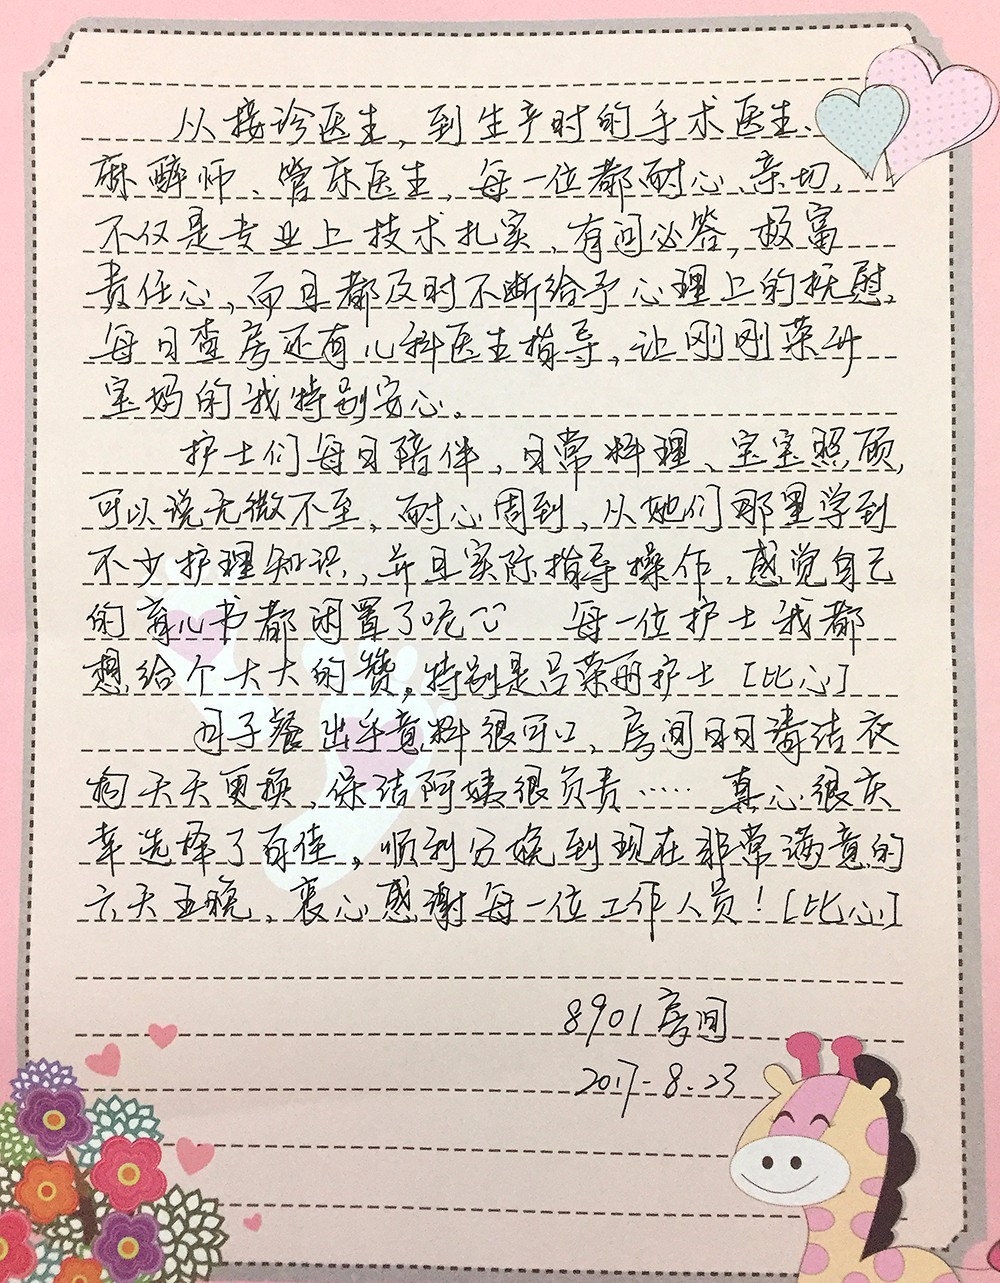 从接诊医生，到生产时的手术医生、
麻醉师、管床医生，每一位都耐心、亲切，
不仅是专业上技术扎实、有问必答，极富
责任心，而且都及时不断给予心理上的抚慰。
每日查房还有儿科医生指导，让刚刚荣升
宝妈的我特别安心。
护士们每日陪伴，日常料理、宝宝照顾，
可以说无微不至，耐心周到，从她们那里学到
不少护理知识，并且实际指导操作，感觉自己
的育儿书都闲置了呢 每一位护士我都
想给个大大的赞，特别是吕荣丽护士[比心]
月子餐出乎意料很可口，房间日日清洁衣
物天天更换，保洁阿姨很负责…… 真心很庆
幸选择了百佳，顺利分娩到现在非常满意的
六天五晚，衷心感谢每一位工作人员！[比心]
8901房间
2017-8.23